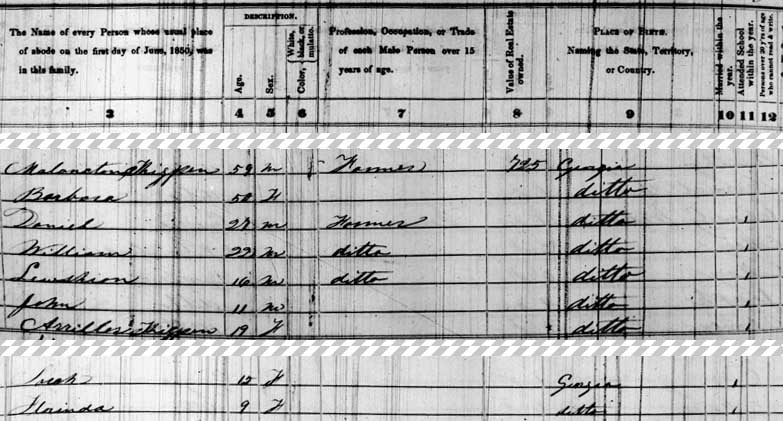 DESCRIPTION.
The Name of every Person whose usual place of abode on the first day of June, 1850, was in this family.
Age.
Sex.
White, black, or mulatto.
Color,
Profession, Occupation, or Trade of each Male Person over 15 years of age.
Value of Real Estate owned.
PLACE OF BIRTH. Naming the State, Territory, or Country.
Married within the year.
Attended School within the year.
Persons over 20 y'rs of age who cannot read & write.
3 4 5 6 7 8 9 10 11 12
Thigpen 52 m Farmer 725 Georgia
Barbara 50 F ditto
Daniel 27 m Farmer ditto 1
William 22 m ditto ditto 1
16 m ditto ditto 1
John 11 m ditto 1
Thigpen 19 F ditto 1
12 F Georgia 1
Florinda 9 F ditto 1